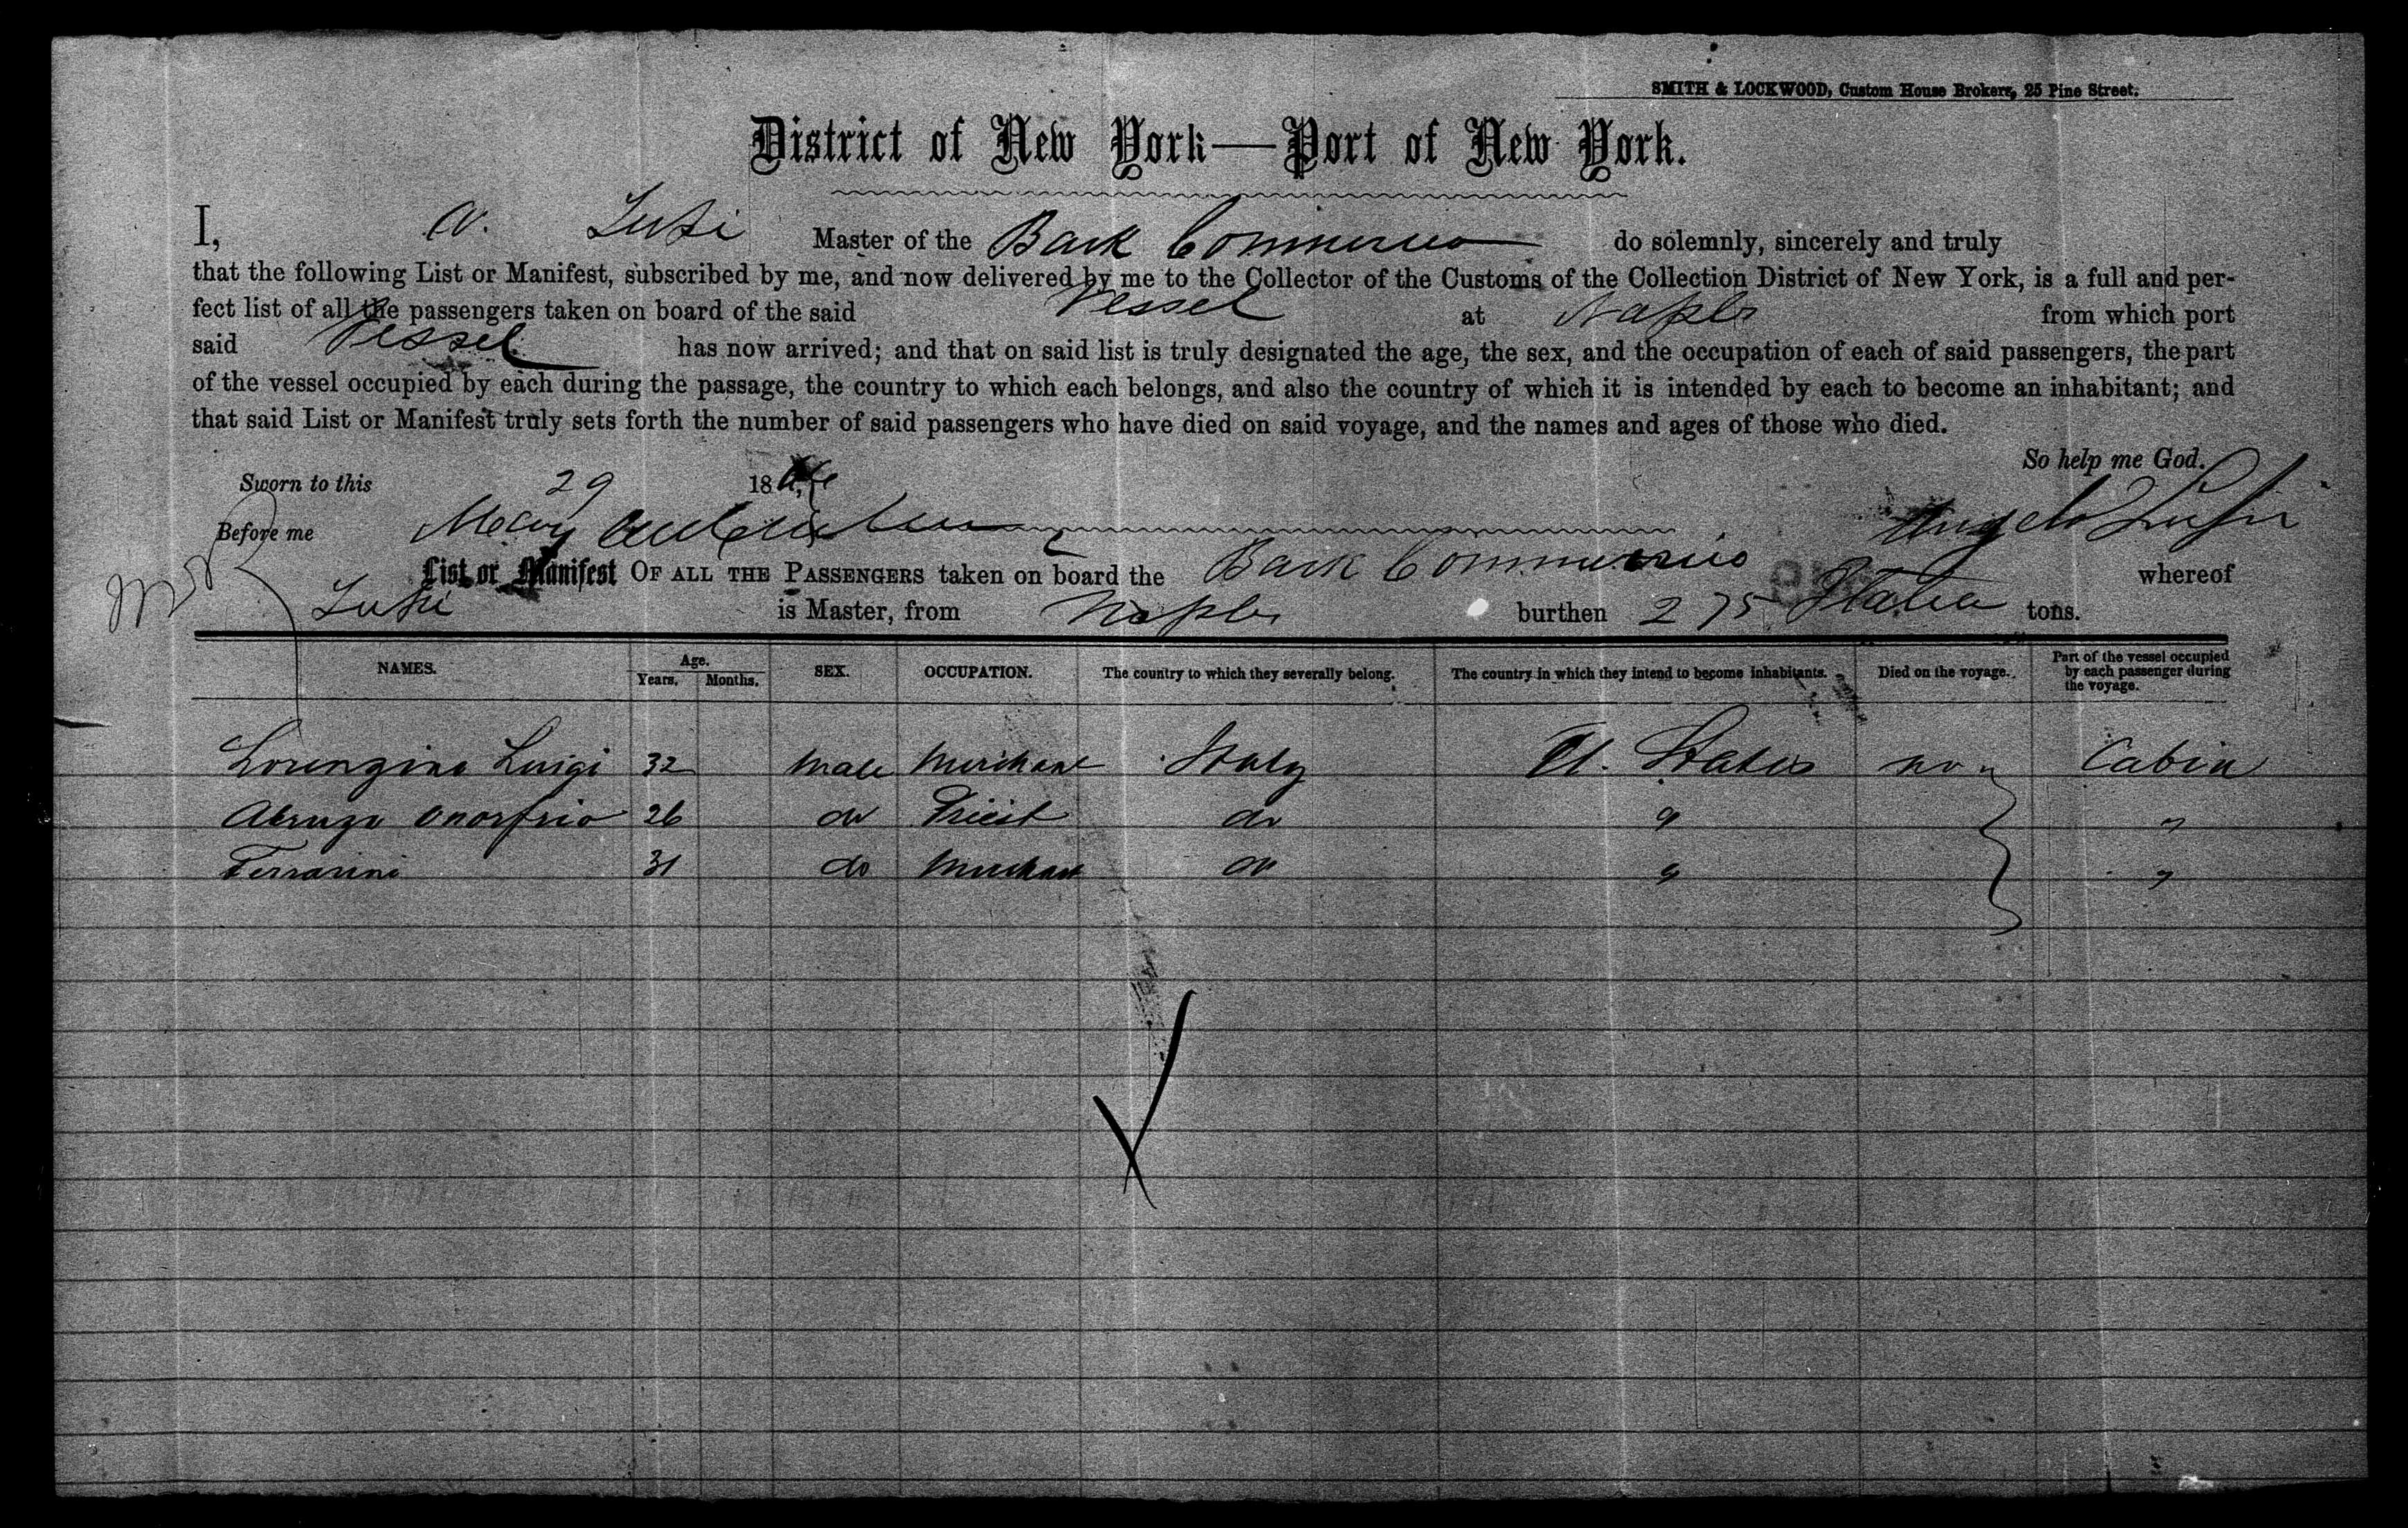 SMITH & LOCKWOOD, Custom House Brokers, 25 Pine Street.
District of New York—Port of New York.
I, A. Lusi Master of the Bark Commercio do solemnly, sincerely and truly
that the following List or Manifest, subscribed by me, and now delivered by me to the Collector of the Customs of the Collection District of New York, is a full and per-
fect list of all the passengers taken on board of the said Vessel at Naples from which port
said Vessel has now arrived; and that on said list is truly designated the age, the sex, and the occupation of each of said passengers, the part
of the vessel occupied by each during the passage, the country to which each belongs, and also the country of which it is intended by each to become an inhabitant; and
that said List or Manifest truly sets forth the number of said passengers who have died on said voyage, and the names and ages of those who died.
So help me God.
Sworn to this 29 18
Before me May Angelo
List or Manifest OF ALL THE PASSENGERS taken on board the Bark Commercio whereof
is Master, from Naples burthen 275 tons.
NAMES. Age. Years. Months. SEX. OCCUPATION. The country to which they severally belong. The country in which they intend to become inhabitants. Died on the voyage. Part of the vessel occupied by each passenger during the voyage.
Lorenzino Luigi 32 Male Merchant Italy U. States no Cabin
Abruzo Onorfrio 26 do Priest do " "
Ferrarini 31 do Merchant do " "